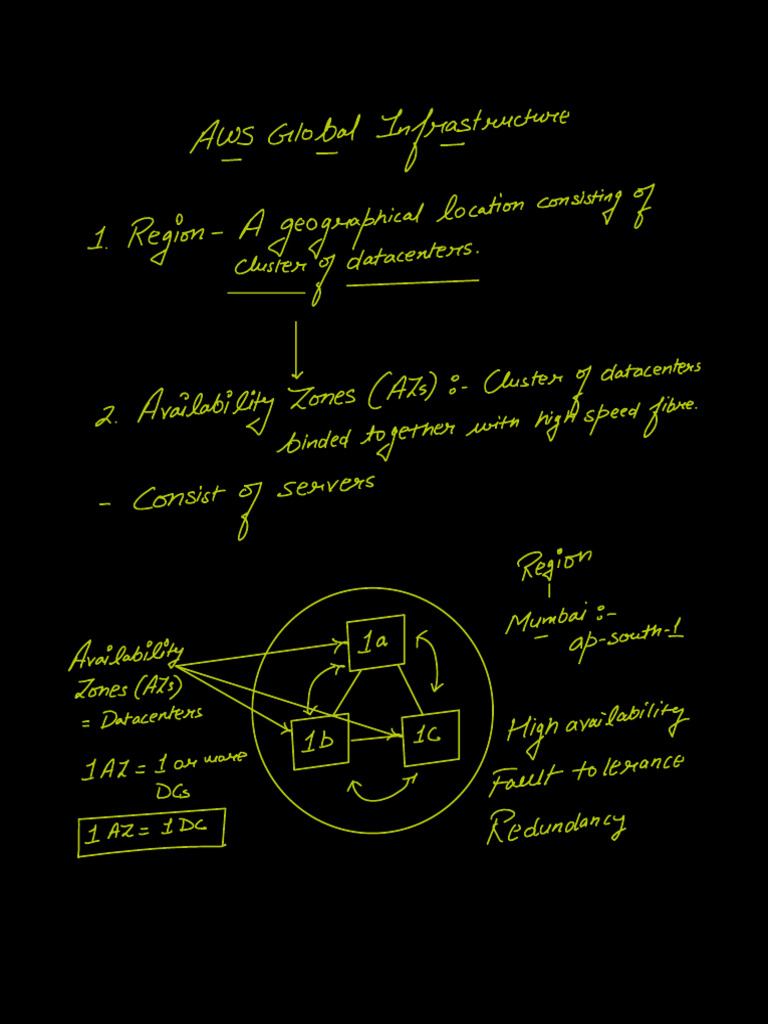 AWS Global Infrastructure
1. Region - A geographical location consisting of
cluster of datacenters.
2. Availability Zones (AZs) :- Cluster of datacenters
binded together with high speed fibre.
- Consist of servers
Region
Mumbai :-
ap-south-1
Availability
Zones (AZs)
= Datacenters
1 AZ = 1 or more
DCs
1 AZ = 1 DC
1a
1b
1c
High availability
Fault tolerance
Redundancy